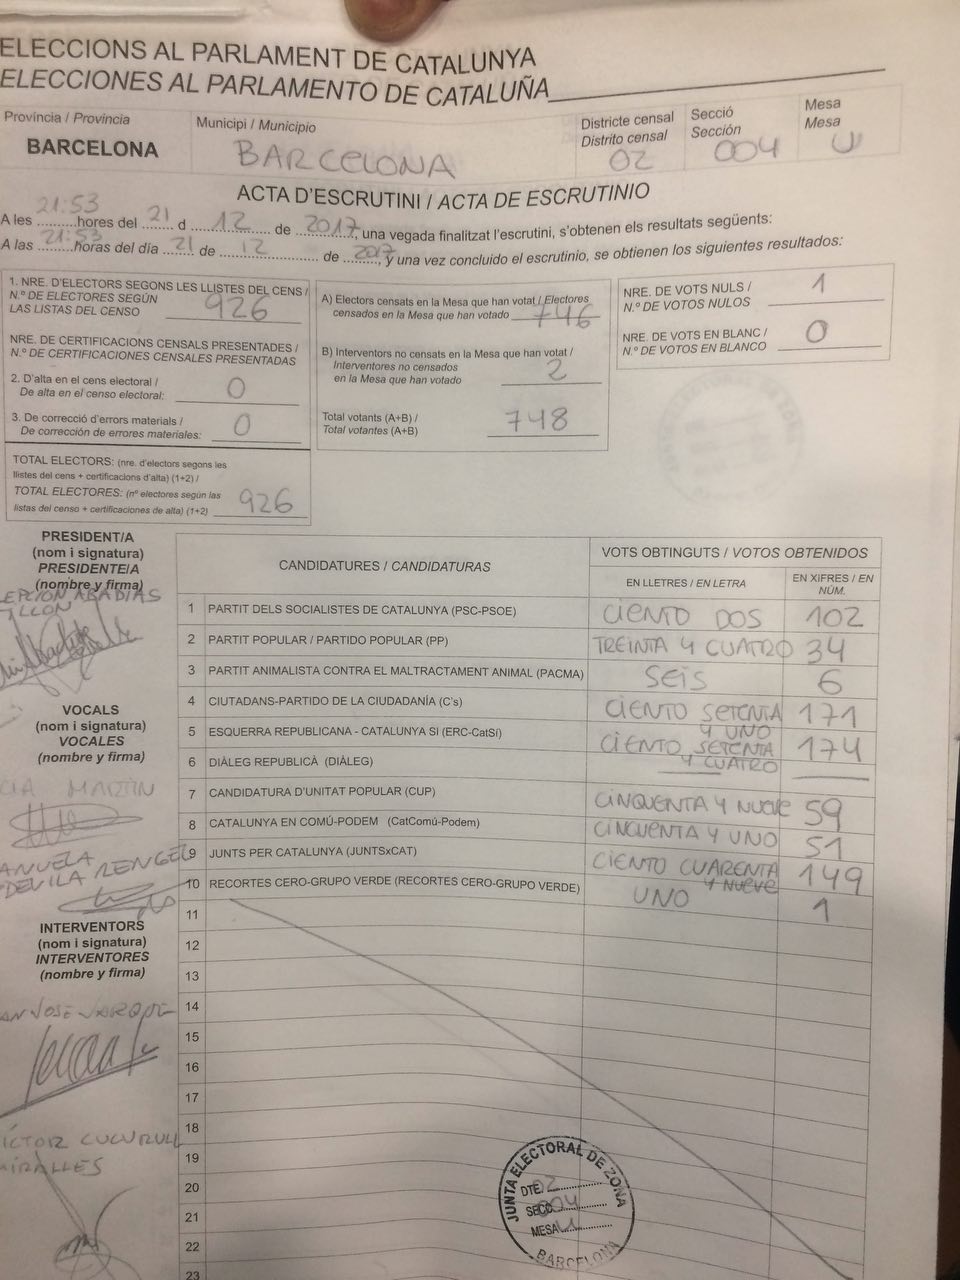 ELECCIONS AL PARLAMENT DE CATALUNYA
ELECCIONES AL PARLAMENTO DE CATALUÑA
Província / Provincia
BARCELONA
Municipi / Municipio
BARCELONA
Districte censal
Distrito censal
02
Secció
Sección
004
Mesa
Mesa
U
ACTA D'ESCRUTINI / ACTA DE ESCRUTINIO
A les 21:53 hores del 21 d 12 de 2017, una vegada finalitzat l'escrutini, s'obtenen els resultats següents:
A las 21:53 horas del día 21 de 12 de 2017, y una vez concluido el escrutinio, se obtienen los siguientes resultados:
1. NRE. D'ELECTORS SEGONS LES LLISTES DEL CENS /
N.º DE ELECTORES SEGÚN
LAS LISTAS DEL CENSO 926
NRE. DE CERTIFICACIONS CENSALS PRESENTADES /
N.º DE CERTIFICACIONES CENSALES PRESENTADAS
2. D'alta en el cens electoral /
De alta en el censo electoral: 0
3. De correcció d'errors materials /
De corrección de errores materiales: 0
TOTAL ELECTORS: (nre. d'electors segons les
llistes del cens + certificacions d'alta) (1+2) /
TOTAL ELECTORES: (nº electores según las
listas del censo + certificaciones de alta) (1+2) 926
A) Electors censats en la Mesa que han votat / Electores
censados en la Mesa que han votado 746
B) Interventors no censats en la Mesa que han votat /
Interventores no censados
en la Mesa que han votado 2
Total votants (A+B) /
Total votantes (A+B) 748
NRE. DE VOTS NULS /
N.º DE VOTOS NULOS 1
NRE. DE VOTS EN BLANC /
N.º DE VOTOS EN BLANCO 0
PRESIDENT/A
(nom i signatura)
PRESIDENTE/A
(nombre y firma)
VOCALS
(nom i signatura)
VOCALES
(nombre y firma)
MARTIN
INTERVENTORS
(nom i signatura)
INTERVENTORES
(nombre y firma)
CANDIDATURES / CANDIDATURAS
VOTS OBTINGUTS / VOTOS OBTENIDOS
EN LLETRES / EN LETRA
EN XIFRES / EN
NÚM.
1 PARTIT DELS SOCIALISTES DE CATALUNYA (PSC-PSOE) CIENTO DOS 102
2 PARTIT POPULAR / PARTIDO POPULAR (PP) TREINTA Y CUATRO 34
3 PARTIT ANIMALISTA CONTRA EL MALTRACTAMENT ANIMAL (PACMA) SEIS 6
4 CIUTADANS-PARTIDO DE LA CIUDADANÍA (C's) CIENTO SETENTA Y UNO 171
5 ESQUERRA REPUBLICANA - CATALUNYA SÍ (ERC-CatSí) CIENTO SETENTA Y CUATRO 174
6 DIÀLEG REPUBLICÀ (DIÀLEG)
7 CANDIDATURA D'UNITAT POPULAR (CUP) CINQUENTA Y NUEVE 59
8 CATALUNYA EN COMÚ-PODEM (CatComú-Podem) CINCUENTA Y UNO 51
9 JUNTS PER CATALUNYA (JUNTSxCAT) CIENTO CUARENTA Y NUEVE 149
10 RECORTES CERO-GRUPO VERDE (RECORTES CERO-GRUPO VERDE) UNO 1
11
12
13
14
15
16
17
18
19
20
21
22
23
JUNTA ELECTORAL DE ZONA
DTE. 02
SECC. 004
MESA U
BARCELONA